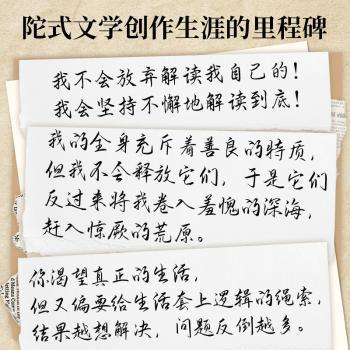 陀式文学创作生涯的里程碑
我不会放弃解读我自己的!
我会坚持不懈地解读到底!
我的全身充斥着善良的特质,
但我不会释放它们, 于是它们
反过来将我卷入羞愧的深海,
赶入惊厥的荒原。
你渴望真正的生活,
但又偏要给生活套上逻辑的绳索,
结果越想解决, 问题反倒越多。